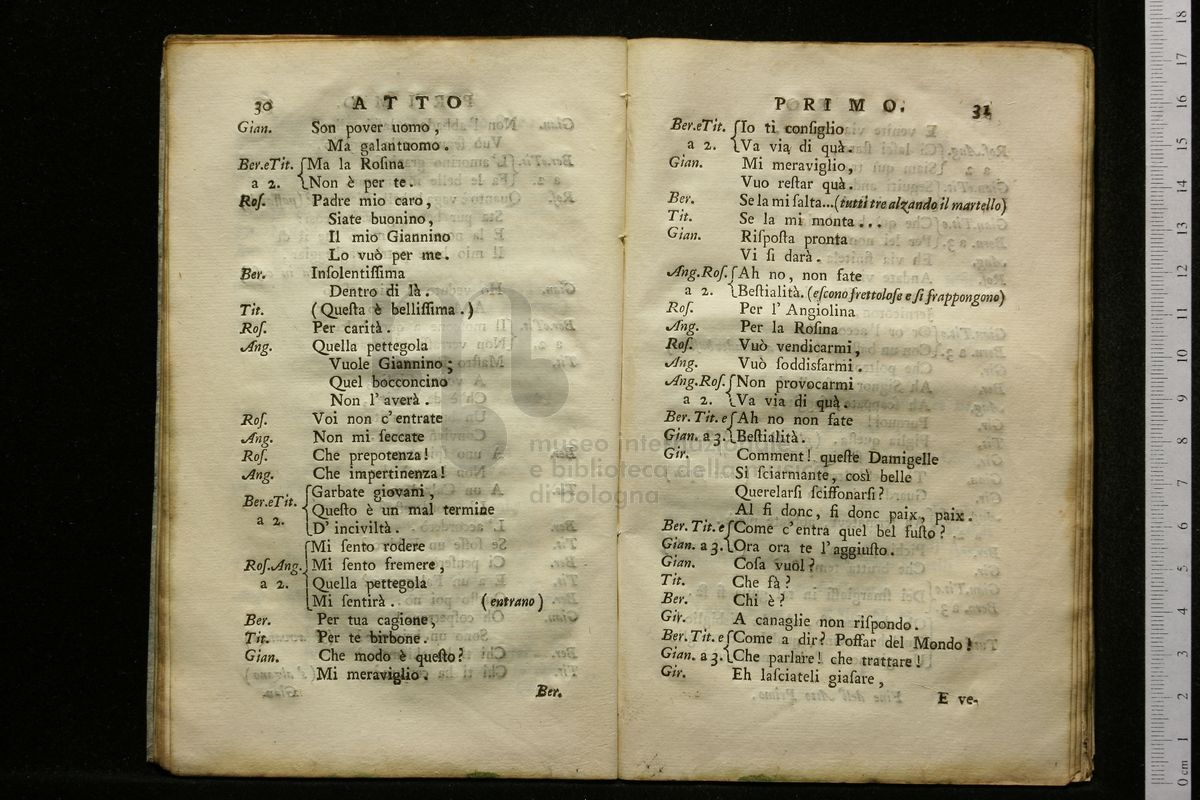 30 ATTO
Gian. Son pover uomo,
Ma galantuomo.
Ber.eTit. Ma la Roſina
a 2. Non è per te.
Roſ. Padre mio caro,
Siate buonino,
Il mio Giannino
Lo vuò per me.
Ber. Inſolentiſſima
Dentro di là.
Tit. (Queſta è belliſſima.)
Roſ. Per carità.
Ang. Quella pettegola
Vuole Giannino;
Quel bocconcino
Non l'averà.
Roſ. Voi non c'entrate
Ang. Non mi ſeccate
Roſ. Che prepotenza!
Ang. Che impertinenza!
Garbate giovani,
Ber.eTit. Queſto è un mal termine
a 2. D'inciviltà.
Mi ſento rodere
Roſ.Ang. Mi ſento fremere,
a 2. Quella pettegola
Mi ſentirà. (entrano)
Ber. Per tua cagione,
Tit. Per te birbone.
Gian. Che modo è queſto?
Mi meraviglio.
Ber.
PRIMO. 31
Ber.eTit. Io ti conſiglio
a 2. Va via di quà.
Gian. Mi meraviglio,
Vuo reſtar quà.
Ber. Se la mi ſalta...(tutti tre alzando il martello)
Tit. Se la mi monta...
Gian. Riſpoſta pronta
Vi ſi darà.
Ang.Roſ. Ah no, non fate
a 2. Beſtialità. (eſcono frettoloſe e ſi frappongono)
Roſ. Per l'Angiolina
Ang. Per la Roſina
Roſ. Vuò vendicarmi,
Ang. Vuò ſoddisfarmi.
Ang.Roſ. Non provocarmi
a 2. Va via di quà.
Ber. Tit. e Ah no non fate
Gian. a 3. Beſtialità.
Gir. Comment! queſte Damigelle
Si ſciarmante, così belle
Querelarſi ſciffonarſi?
Al fi donc, fi donc paix, paix.
Ber. Tit. e Come c'entra quel bel fuſto?
Gian. a 3. Ora ora te l'aggiuſto.
Gian. Coſa vuol?
Tit. Che fà?
Ber. Chi è?
Gir. A canaglie non riſpondo.
Ber. Tit. e Come a dir? Poffar del Mondo!
Gian. a 3. Che parlare! che trattare!
Gir. Eh laſciateli giaſare,
E ve-
museo internazionale
e biblioteca della musica
di bologna
0 cm 1 2 3 4 5 6 7 8 9 10 11 12 13 14 15 16 17 18